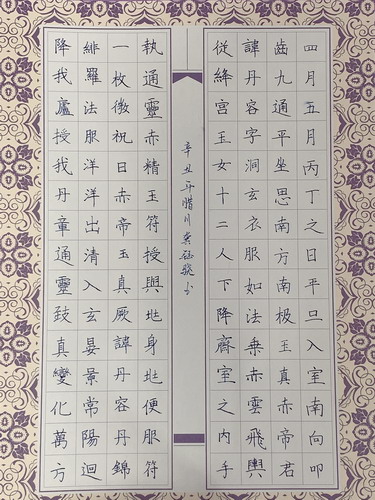 四月五月丙丁之日平旦入室南向叩
齒九通平坐思南方南極王真赤帝君
諱丹容字洞玄衣服如法乘赤雲飛輿
從絳宮玉女十二人下降齋室之內手
執通靈赤精玉符授與地身地便服符
一枚微祝日赤帝玉真厥諱丹容丹錦
緋羅法服洋洋出清入玄晏景常陽迴
降我廬授我丹章通靈致真變化萬方
辛丑年腊月书